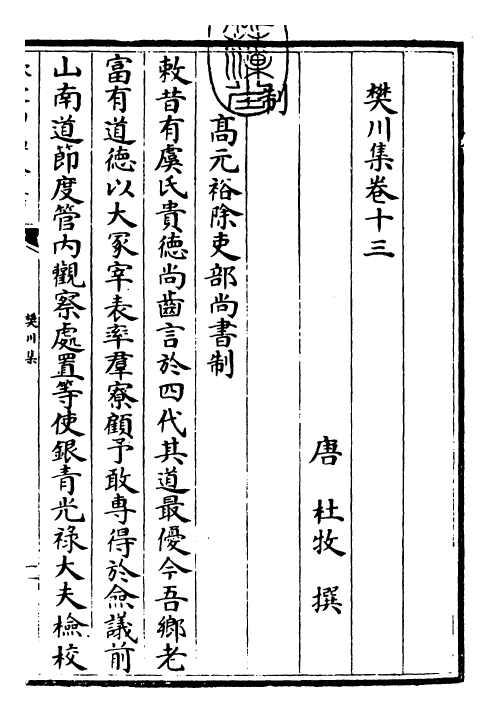 樊川集卷十三
唐 杜牧 撰
制
高元裕除吏部尚書制
敕昔有虞氏貴德尚齒言於四代其道最優今吾鄉老
富有道德以大冢宰表率羣寮顧予敢専得於僉議前
山南道節度管内觀察處置等使銀青光祿大夫檢校
樊川集